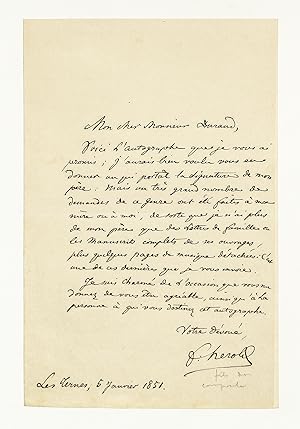 Mon cher Monsieur Durand,
Voici l'autographe que je vous ai
promis ; j'aurais bien voulu vous en
donner un qui portât la signature de mon
père : Mais un très grand nombre de
demandes de ce genre ont été faites à ma
mère ou à moi, de sorte que je n'ai plus
de mon père que des Lettres de famille ou
les Manuscrits complets de ses ouvrages,
plus quelques pages de musique détachées. C'est
une de ces dernières que je vous envoie.
Je suis charmé de l'occasion que vous me
donnez de vous être agréable, ainsi qu'à la
personne à qui vous destinez cet autographe.
Votre dévoué,
F Herold
fils du
compositeur
Les Ternes, 6 Janvier 1851.